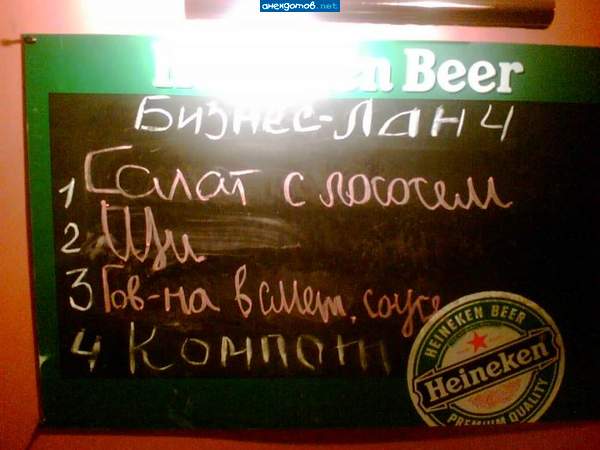 анекдотов.net
Heineken Beer
БИЗНЕС-ЛАНЧ
1 Салат с лососем
2 Щи
3 Гов-на в смет. соусе
4 Компот
HEINEKEN BEER
Heineken
PREMIUM QUALITY